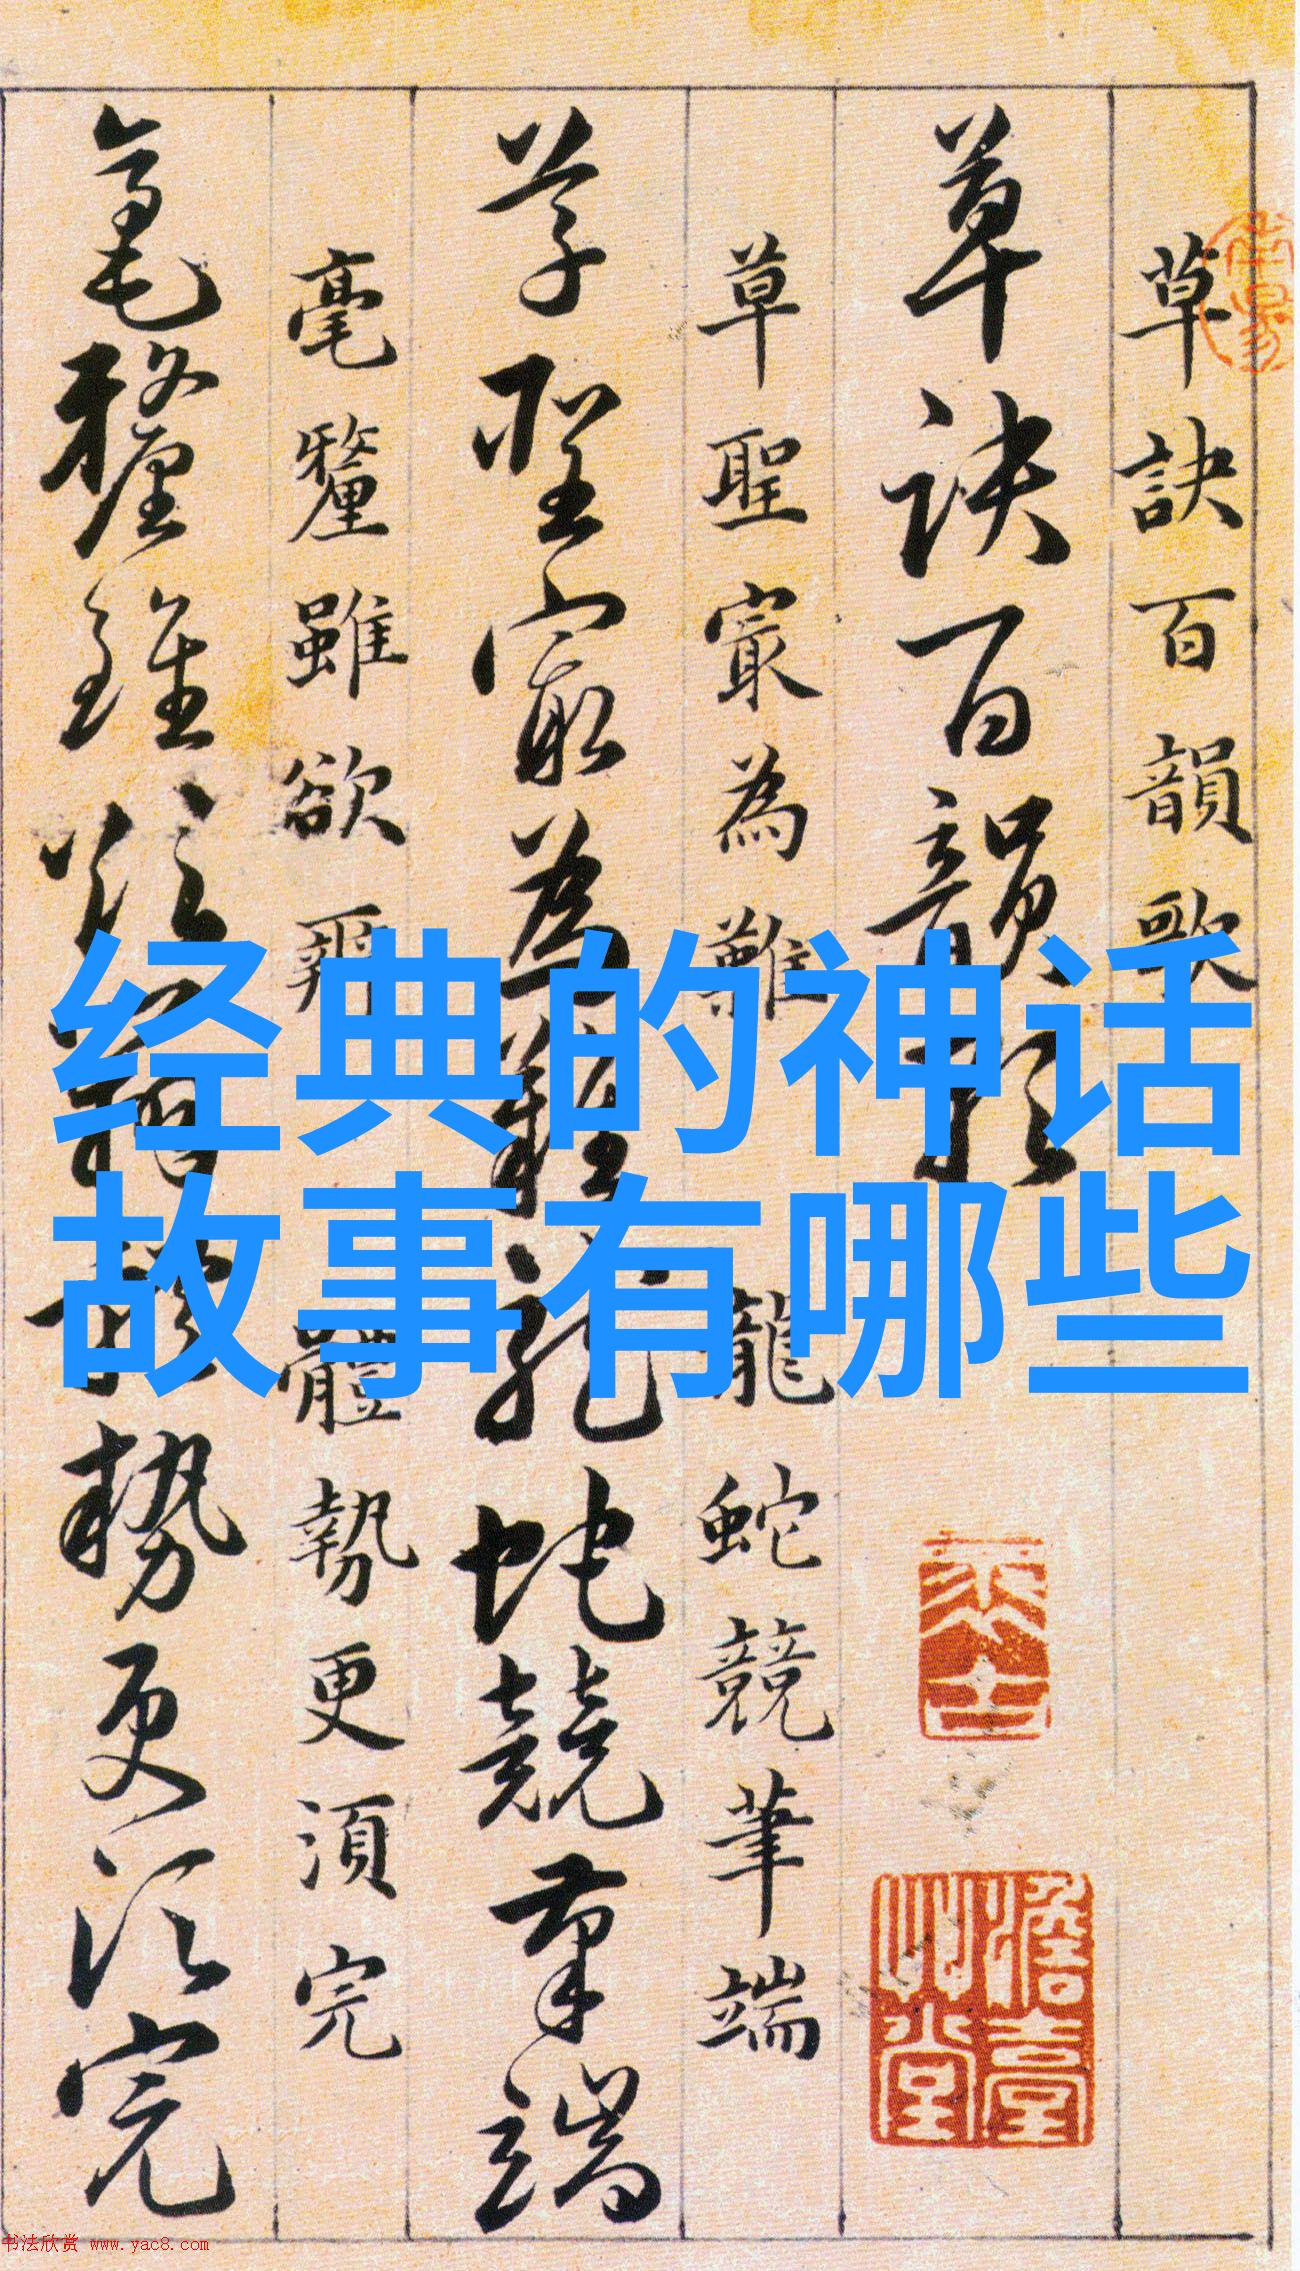 草訣百韻歌
草訣百韻歌
草聖寂為難 龍蛇競筆端
草聖寂為難龍蛇競筆端
毫釐雖欲辨 體勢更須完
毫釐雖欲辨體勢更須完
经典的神话
故事有哪些
书法欣赏 www.yac8.com